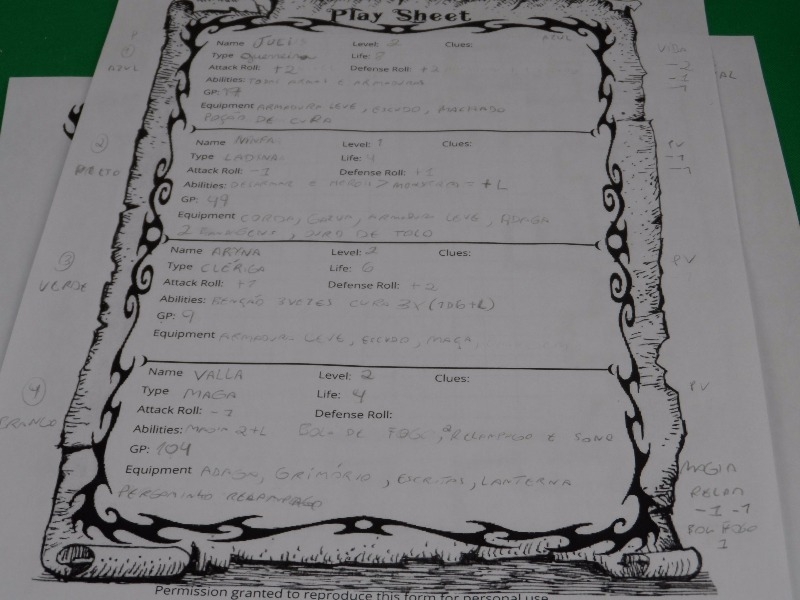 Play Sheet
P
1
AZUL
Name Level: 2 Clues: AZUL
Type Life:
Attack Roll: +2 Defense Roll: +2
Abilities: ARMAS E ARMADURA
GP:
Equipment ARMADURA LEVE, ESCUDO, MACHADO
POÇÃO DE CURA
VIDA
-2
-1
-1
2
PRETO
Name NINFA Level: 1 Clues:
Type LADINA Life: 4
Attack Roll: -1 Defense Roll: +1
Abilities: +L
GP: 99
Equipment CORDA, ARMADURA LEVE, ADAGA
2 , OURO DE TOLO
PV
-1
-1
3
VERDE
Name ARYNA Level: 2 Clues:
Type CLÉRIGA Life: 6
Attack Roll: +1 Defense Roll: +2
Abilities: BENÇÃO 3VEZES CURA 3X (1D6+L)
GP: 9
Equipment ARMADURA LEVE, ESCUDO, MAÇA,
PV
4
BRANCO
Name VALLA Level: 2 Clues:
Type MAGA Life: 4
Attack Roll: -1 Defense Roll:
Abilities: MAGIA 2+L BOLA DE FOGO, RELAMPAGO E SONO
GP: 104
Equipment ADAGA, GRIMÓRIO, ESCRITAS, LANTERNA
PERGAMINHO RELAMPAGO
PV
MAGIA
RELAM
-1 -1
BOL FOGO
1
Permission granted to reproduce this form for personal use